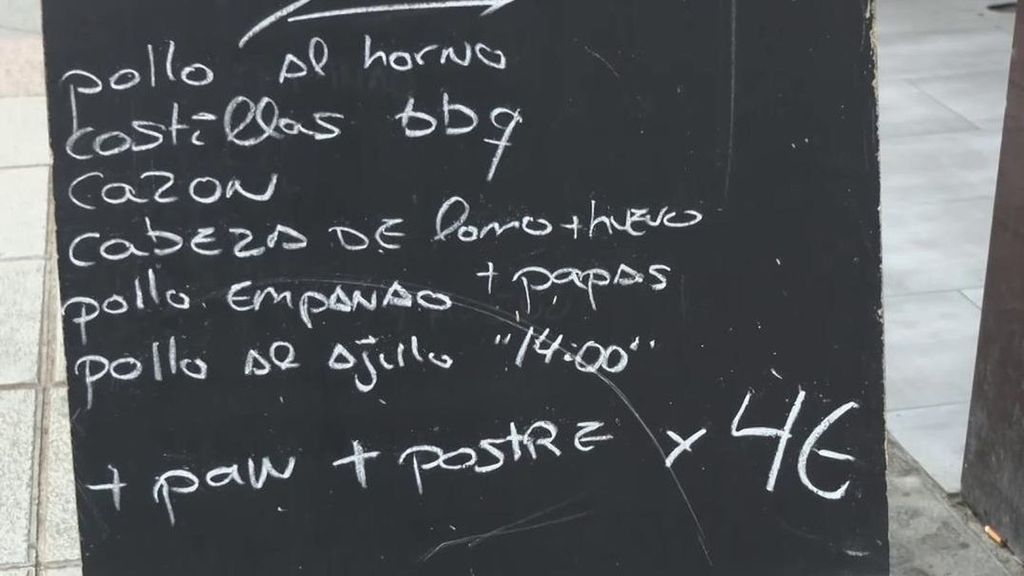 pollo al horno
costillas bbq
cazon
cabeza de lomo + huevo
+ papas
pollo empanao
pollo al ajillo "14:00"
+ pan + postre x 4€